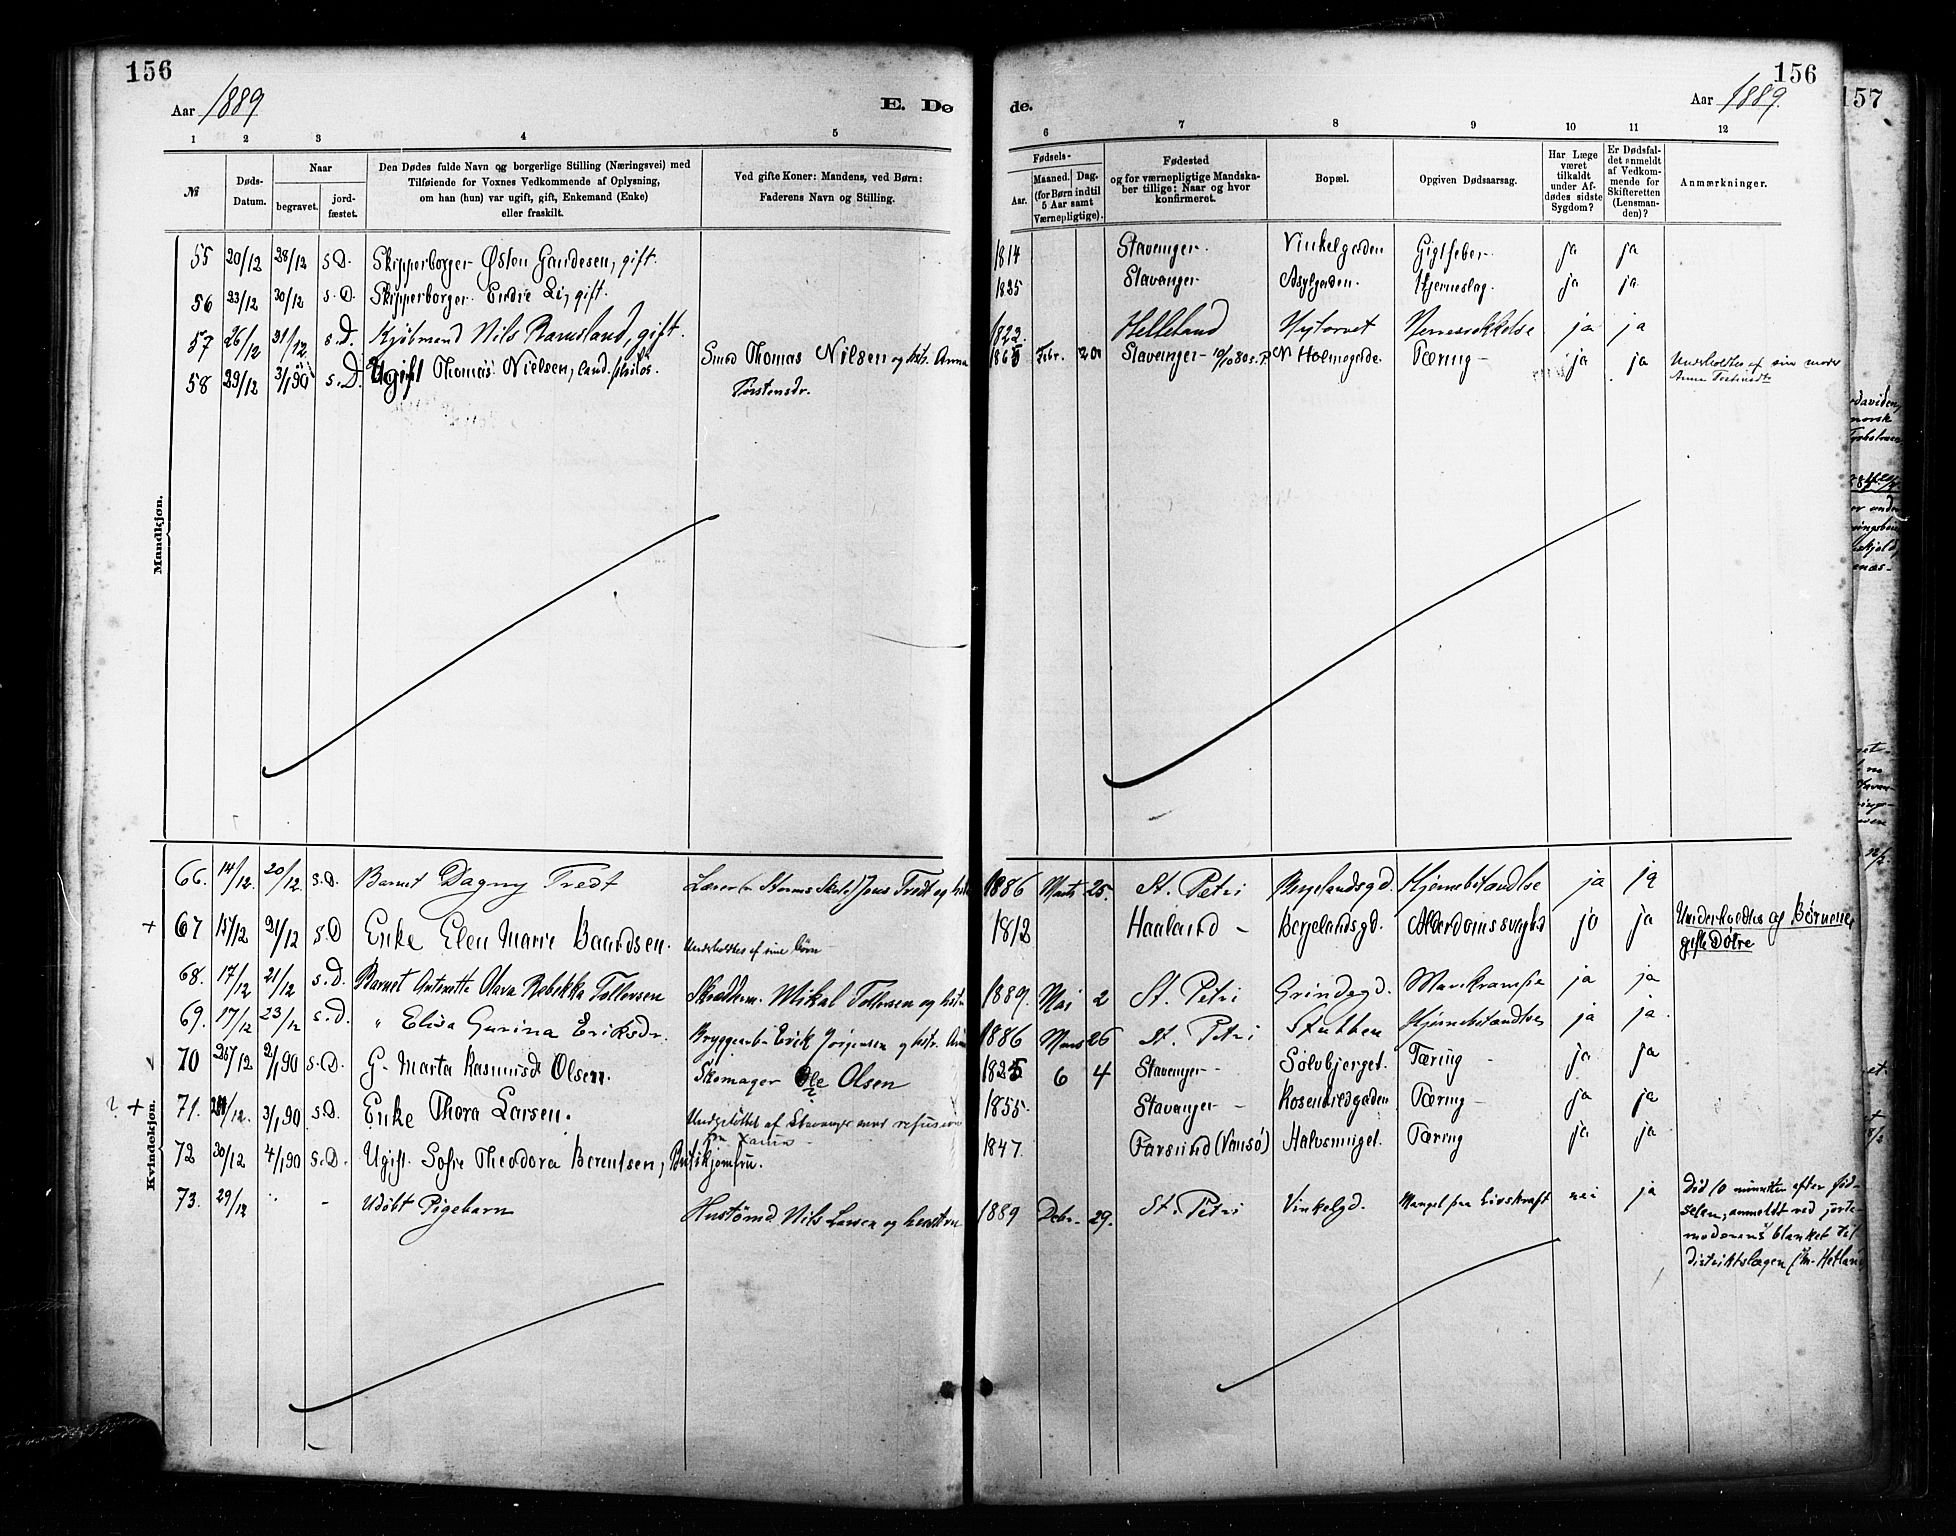 156
Aar 1889
E. Dø
de.
156
Aar 1889.
157
1 2 3 4 5 6 7 8 9 10 11 12
№
Døds-Datum.
Naar
begravet.
jord-fæstet.
Den Dødes fulde Navn og borgerlige Stilling (Næringsvei) med
Tilføiende for Voxnes Vedkommende af Oplysning,
om han (hun) var ugift, gift, Enkemand (Enke)
eller fraskilt.
Ved gifte Koner: Mandens, ved Børn:
Faderens Navn og Stilling.
Fødsels-
Aar.
Maaned. Dag.
(for Børn indtil
5 Aar samt
Værnepligtige).
Fødested
og for værnepligtige Mandska-
ber tillige: Naar og hvor
konfirmeret.
Bopæl.
Opgiven Dødsaarsag.
Har Læge
været
tilkaldt
under Af-
dødes sidste
Sygdom?
Er Dødsfal-
det anmeldt
af Vedkom-
mende for
Skifteretten
(Lensman-
den)?
Anmærkninger.
Mandkjøn.
55 20/12 28/12 s.D. Skipperborger Østen Gandesen, gift. 1814 Stavanger. Vinkelgaden Gigtfeber. ja ja
56 23/12 30/12 s.D. Skipperborger Endre Li, gift. 1835 Stavanger Asylgaden. Hjerneslag. ja ja
57 26/12 31/12 s.D. Kjøbmand Nils Ramsland, gift. 1822 Helleland Nytorvet ja ja
58 29/12 3/1 90 s.D. Ugift Thomas Nielsen, cand. philos. Smed Thomas Nilsen og hstr. Anna 186 Febr. 20 Stavanger N Holmegade. Tæring ja ja Underholdtes af sin moder
Torstensdr. Anna
Kvindekjøn.
66. 14/12. 20/12 s.D. Barnet Dagny Tredt Lærer (v. Storms Skole) Jens Tredt og 1886 Marts 25. St. Petri Bergelandsgd. Hjernebetændelse ja ja
+ 67 15/12 21/12 s.D Enke Elen Marie Baardsen. Underholdtes af sine børn 1812 Haaland Bergelandsgd. Alderdomssvaghed ja ja Underholdtes af Børnene,
gifte Døtre
68. 17/12 21/12 s.D. Barnet Antonette Olava Rebekka Tollefsen Mikal Tollefsen og hstr. 1889. Mai 2 St. Petri Grindegd. Mavekrampe ja ja
69. 17/12 23/12 s.D. " Elisa Gurina Eriksdr. Bryggearb. Erik Jørgensen og hstr. 1886 Mars 26 St. Petri Stubben Hjernebetændelse ja ja.
70 28/12 2/1 90 s.D. G. Marta Rasmusd Olsen. Skomager Ole Olsen 1825 6 4 Stavanger Sølvbjerget. Tæring ja ja
? + 71. /12. 3/1 90 s.D. Enke Thora Larsen. Understøttet af Stavanger mod refusion 1855. Stavanger Rosenkildegaden Tæring ja ja
72 30/12 4/1 90 s.D. Ugift. Sofie Theodora Berentsen, Butikjomfru. 1847. Farsund (Vansø) Halvsmuget. Tæring ja ja
73. 29/12 - Udøbt Pigebarn Nils Larsen og hustru 1889 Debr. 29. St. Petri Vinkelgd. Mangel paa Livskraft nei ja Død 10 minutter efter fød-
selen, anmeldt ved jorde-
moderens blanket til
distriktslægen